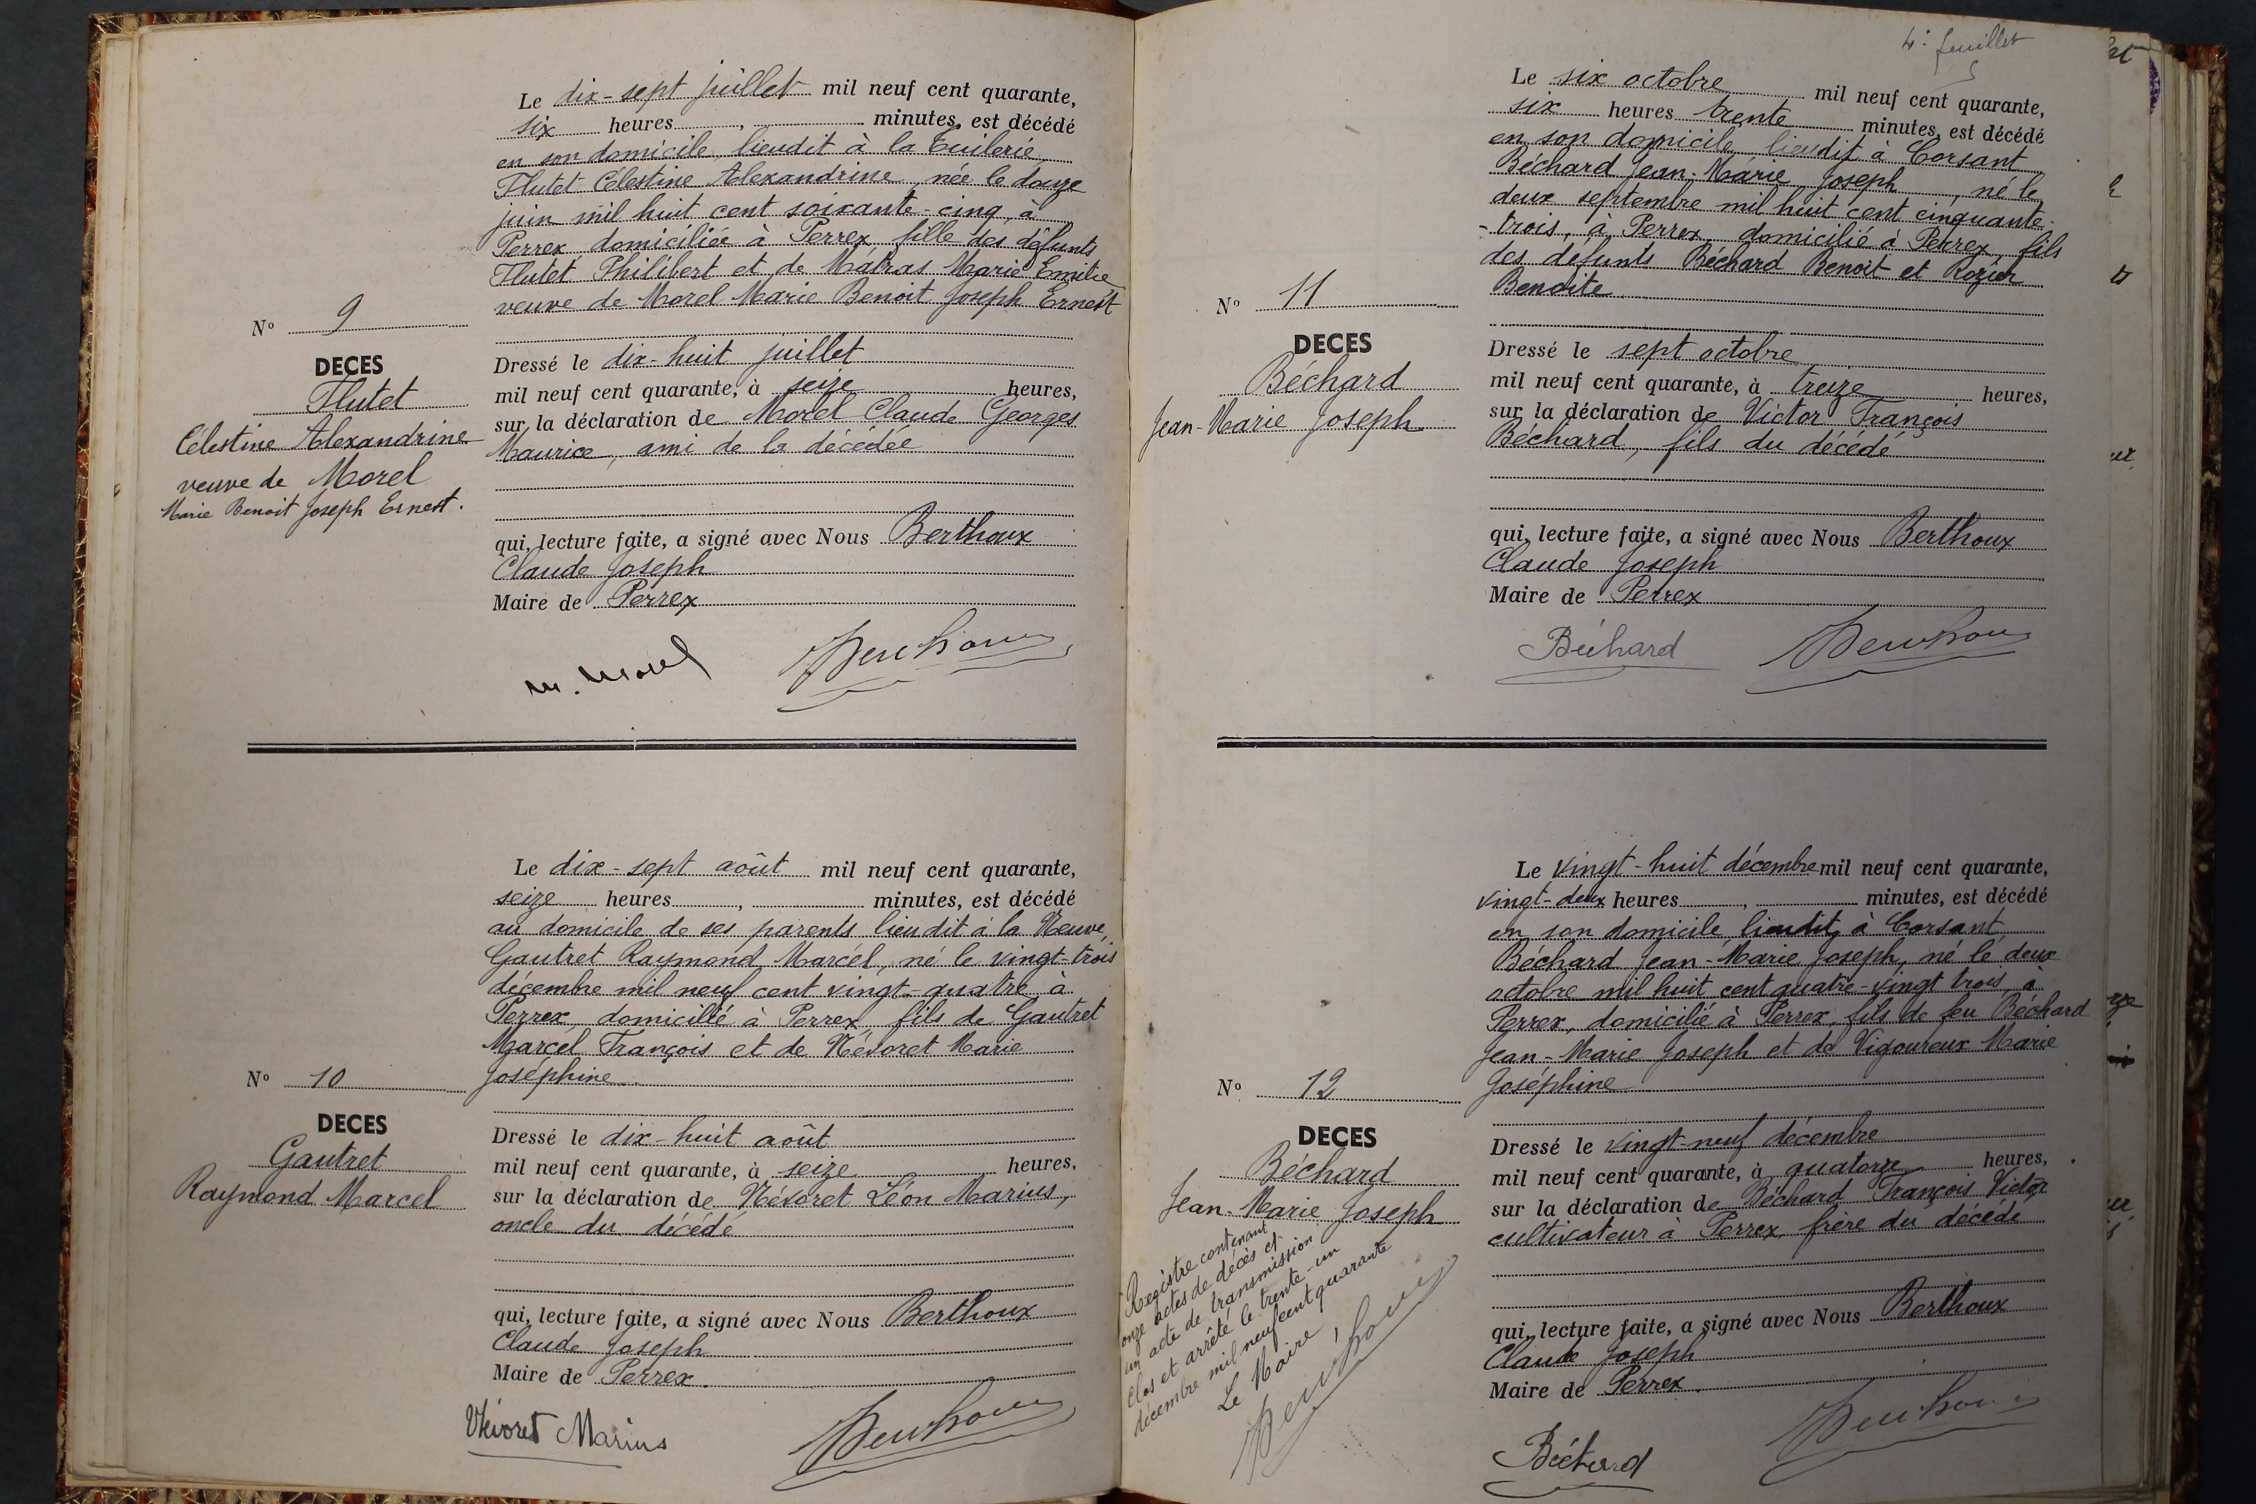 Le dix-sept juillet mil neuf cent quarante,
six heures , minutes, est décédé
en son domicile, lieudit à la Tuilerie,
Flutet Célestine Alexandrine, née le douze
juin mil huit cent soixante-cinq, à
Perrex, domiciliée à Perrex, fille des défunts
Flutet Philibert et de Matras Marie Emilie
veuve de Morel Marie Benoit Joseph Ernest
N° 9
DECES
Flutet
Célestine Alexandrine
veuve de Morel
Marie Benoit Joseph Ernest.
Dressé le dix-huit juillet
mil neuf cent quarante, à seize heures,
sur la déclaration de Morel Claude Georges
Maurice, ami de la décédée
qui, lecture faite, a signé avec Nous Berthoux
Claude Joseph
Maire de Perrex
M. Morel Berthoux
Le dix-sept août mil neuf cent quarante,
seize heures , minutes, est décédé
au domicile de ses parents lieudit à la Neuve,
Gautret Raymond Marcel, né le vingt-trois
décembre mil neuf cent vingt-quatre à
Perrex, domicilié à Perrex, fils de Gautret
Marcel François et de Névoret Marie
Joséphine
N° 10
DECES
Gautret
Raymond Marcel
Dressé le dix-huit août
mil neuf cent quarante, à seize heures,
sur la déclaration de Névoret Léon Marius,
oncle du décédé
qui, lecture faite, a signé avec Nous Berthoux
Claude Joseph
Maire de Perrex.
Névoret Marius Berthoux
4e feuillet
Le six octobre mil neuf cent quarante,
six heures trente minutes, est décédé
en son domicile lieudit à Corsant
Béchard Jean-Marie Joseph, né le
deux septembre mil huit cent cinquante-
-trois, à Perrex, domicilié à Perrex, fils
des défunts Béchard Benoit et Rozier
Benoite
N° 11
DECES
Béchard
Jean-Marie Joseph
Dressé le sept octobre
mil neuf cent quarante, à treize heures,
sur la déclaration de Victor François
Béchard, fils du décédé
qui, lecture faite, a signé avec Nous Berthoux
Claude Joseph
Maire de Perrex
Béchard Berthoux
Le vingt-huit décembre mil neuf cent quarante,
vingt-deux heures , minutes, est décédé
en son domicile, lieudit, à Corsant
Béchard Jean-Marie Joseph, né le deux
octobre mil huit cent quatre-vingt trois, à
Perrex, domicilié à Perrex, fils de feu Béchard
Jean-Marie Joseph et de Vigoureux Marie
Joséphine
N° 12
DECES
Béchard
Jean-Marie Joseph
Dressé le vingt-neuf décembre
mil neuf cent quarante, à quatorze heures,
sur la déclaration de Béchard François Victor
cultivateur à Perrex, frère du décédé
qui, lecture faite, a signé avec Nous Berthoux
Claude Joseph
Maire de Perrex.
Béchard Berthoux
Registre contenant
onze actes de décès et
un acte de transmission
Clos et arrêté le trente-un
décembre mil neuf cent quarante
Le Maire,
Berthoux